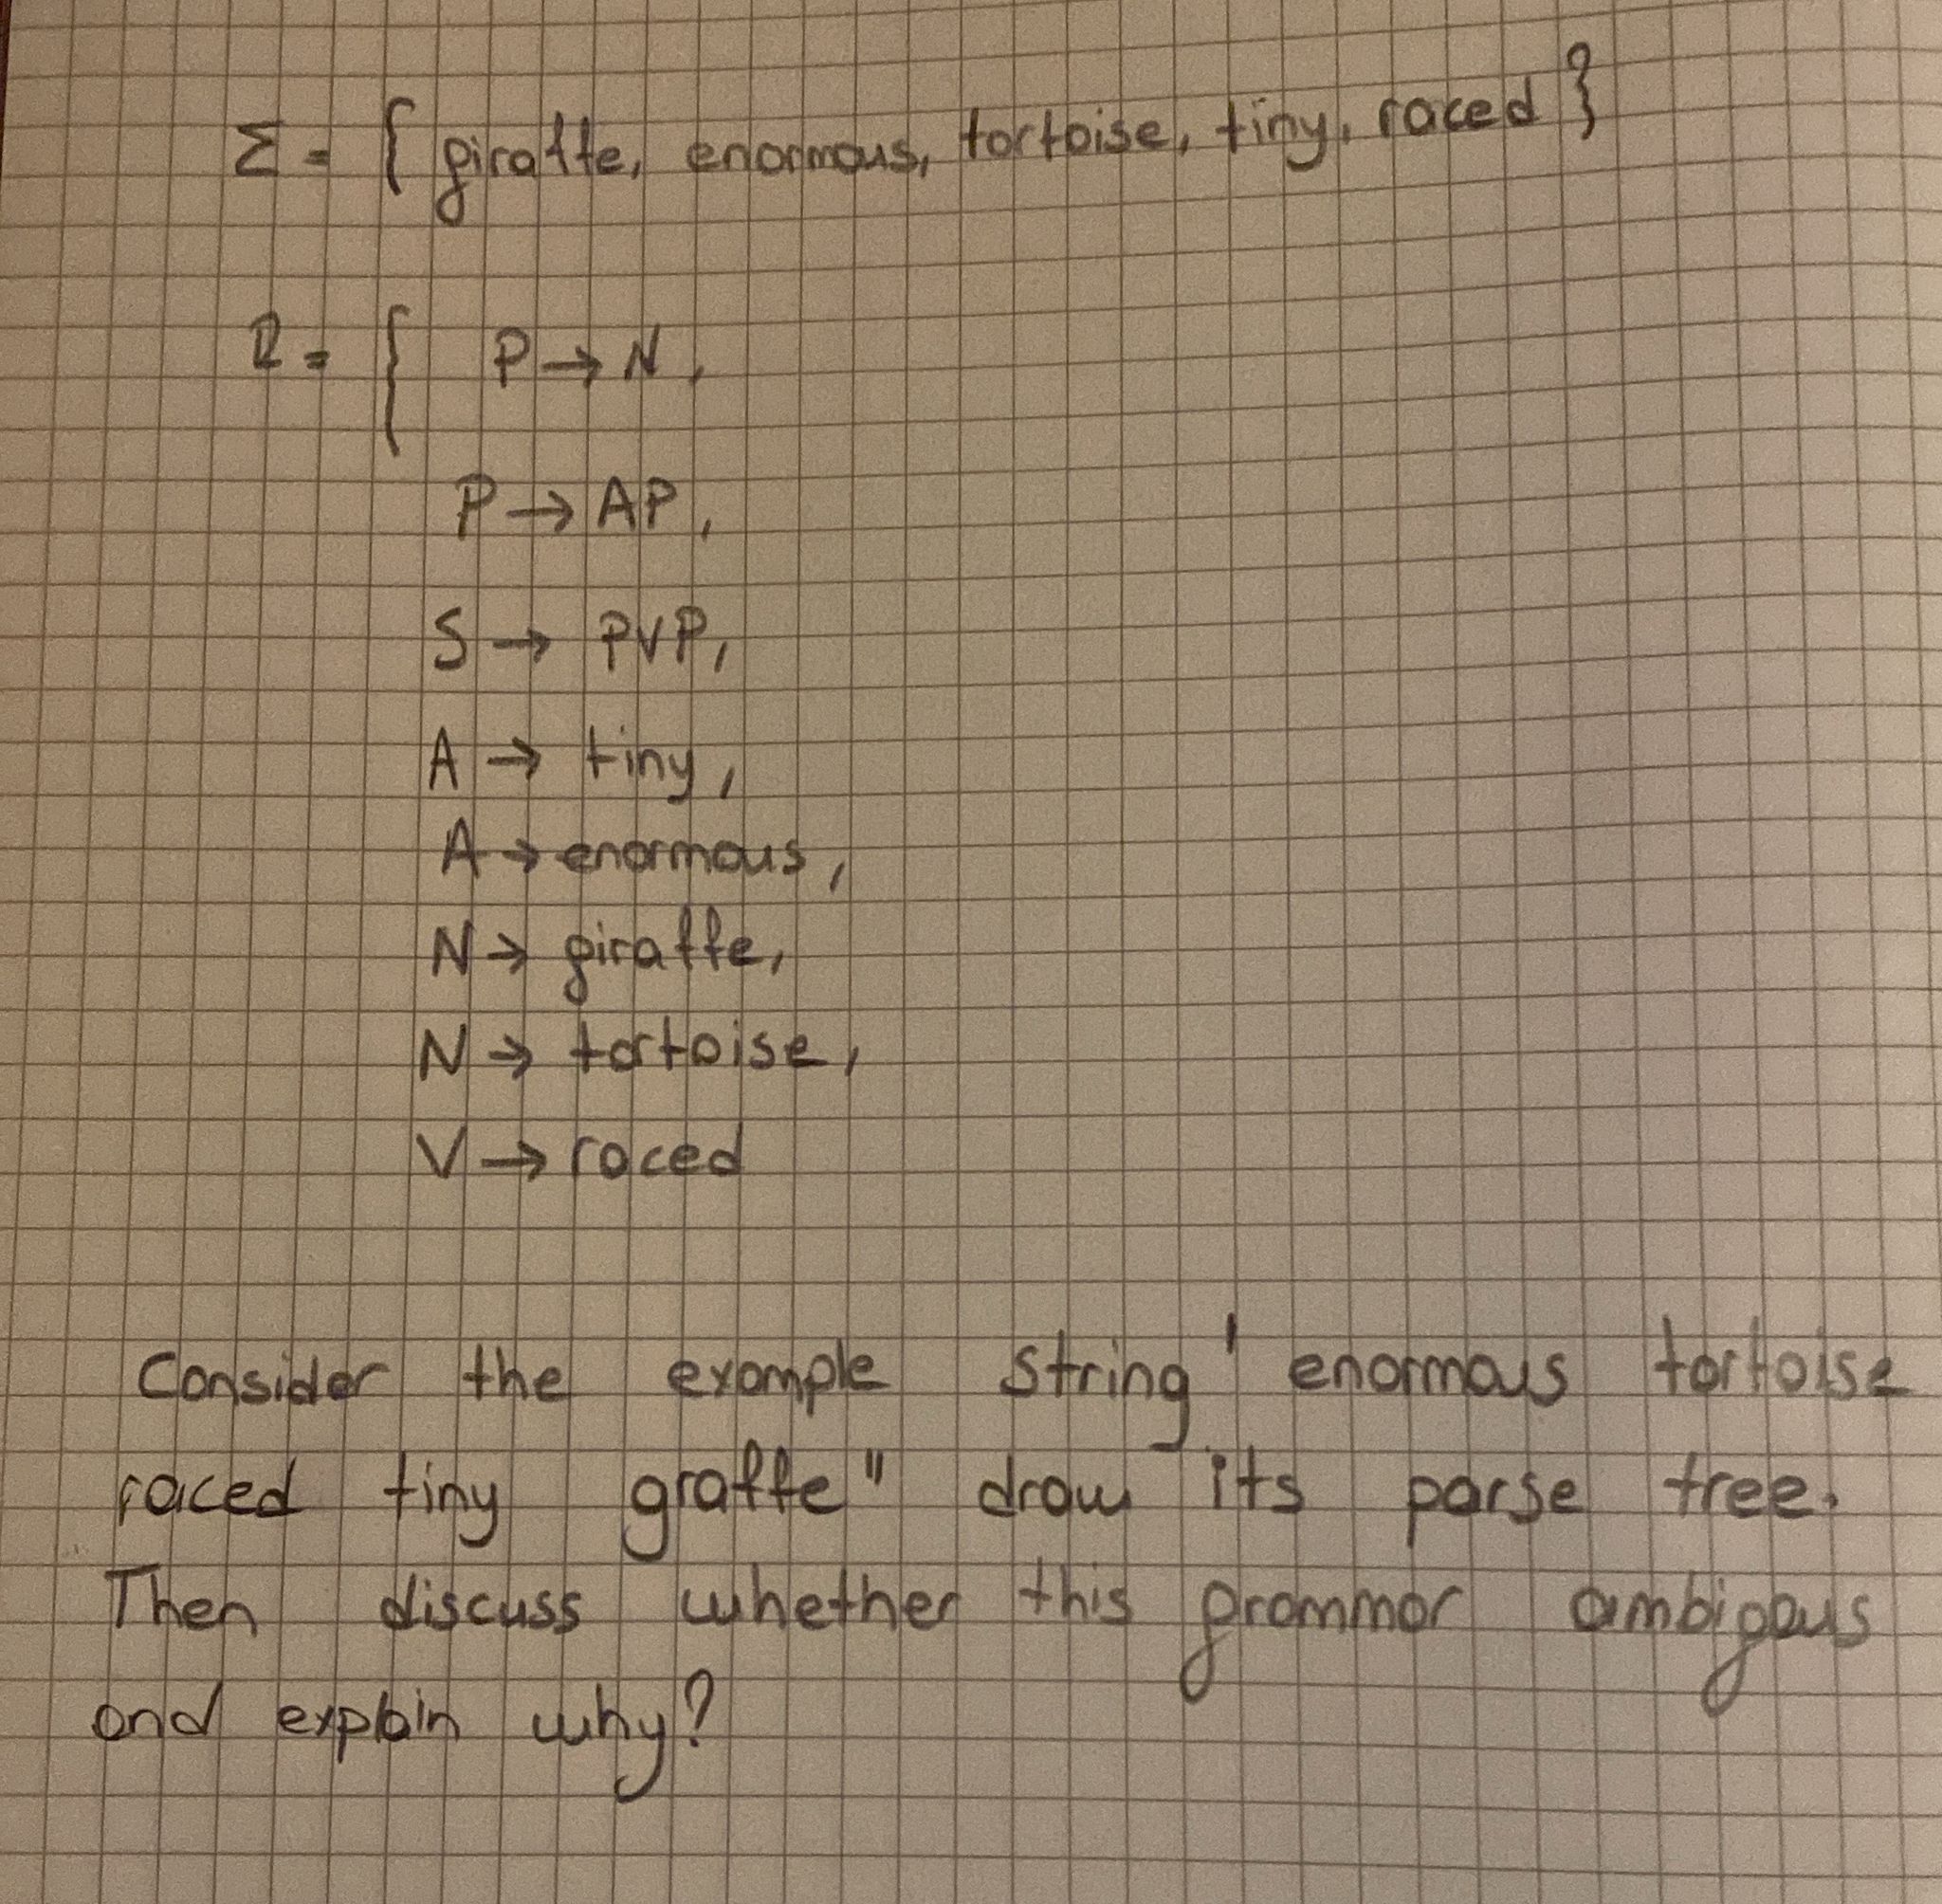 Σ = { giraffe, enormous, tortoise, tiny, raced }
R = { P → N,
P → AP,
S → PVP,
A → tiny,
A → enormous,
N → giraffe,
N → tortoise,
V → raced
Consider the example string ' enormous tortoise
raced tiny graffe" draw its parse tree.
Then discuss whether this grammar ambigous
and explain why?